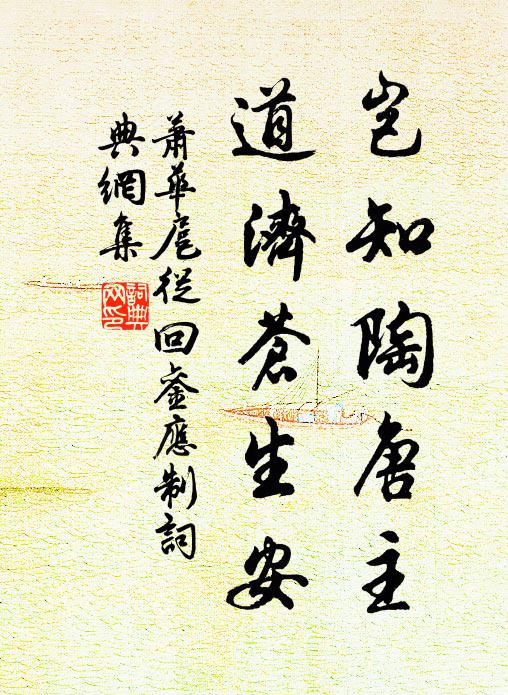 岂知陶唐主
道濟蒼生安
蕭華扈從回鑾應制詞
典網集
詞典網印